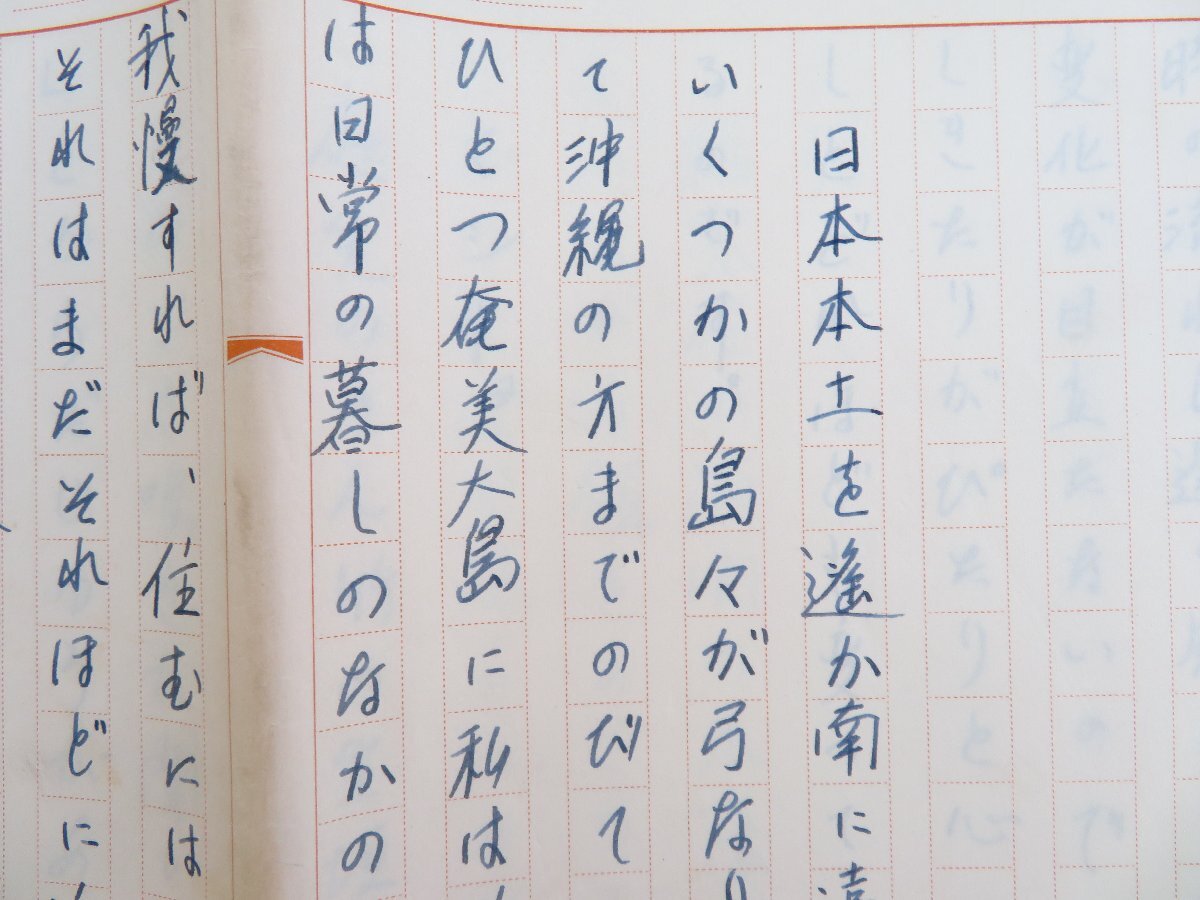 日本本土を遙か南に遠
いくつかの島々が弓なり
て沖縄の方までのびて
ひとつ奄美大島に私は
は日常の暮しのなかの
我慢すれば、住むには
それはまだそれほどに